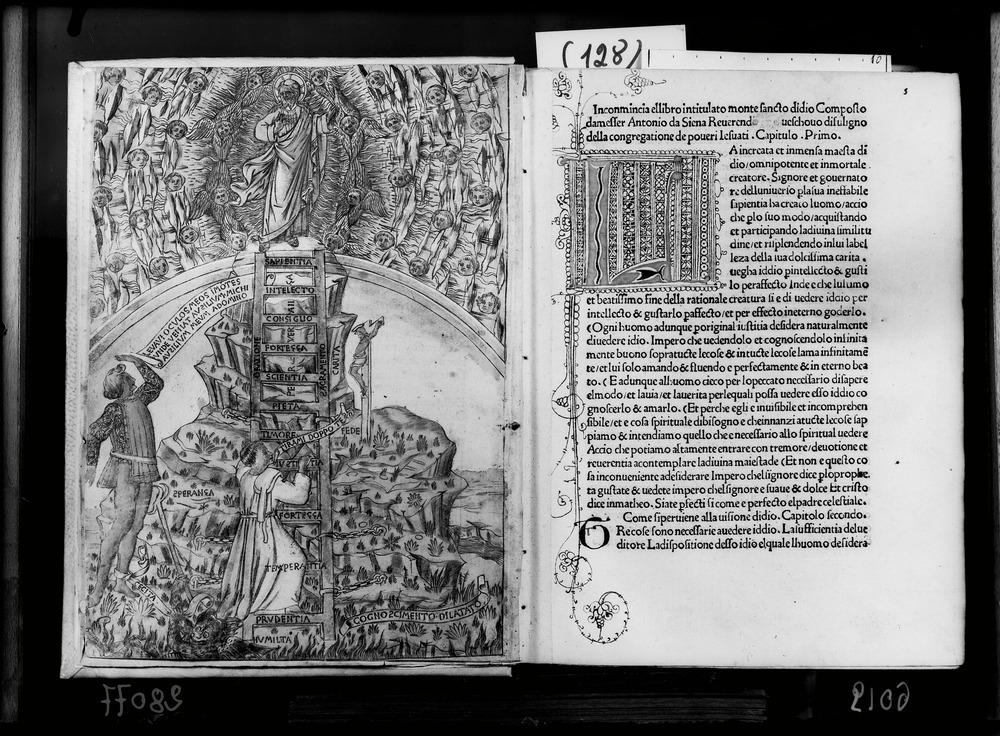 (128)
10
SAPIENTIA
INTELECTO
CONSIGLIO
FORTESSA
SCIENTIA
PIETA
TIMORE
FEDE
CARITA
ORATIONE
SACRAMENTO
LEVAVI OCULOS MEOS IMOTES
UNDE VENIAT AUXILIUM MICHI
AUXILIUM MEUM ADOMINO
TIRAMI DOPPO
IUSTITIA
SPERANSA
FORTESSA
TEMPERANTIA
PRUDENTIA
HUMILTA
COGNOSCIMENTO
CECITA
5
Inconmincia ellibro intitulato monte sancto didio Composto
damesser Antonio da Siena Reuerend ueschouo difuligno
della congregatione de poueri Iesuati . Capitulo . Primo.
A increata et inmensa maesta di
dio/omnipotente et inmortale
creatore. Signore et gouernato
re delluniuerso plasua ineffabile
sapientia ha creato luomo/accio
che plo suo modo/acquistando
et participando ladiuina similitu
dine/et risplendendo inlui label
leza della sua dolcissima carita .
uegha iddio pintellecto & gusti
lo peraffecto Inde e che lulumo
et beatissimo fine della rationale creatura si e di uedere iddio per
intellecto & gustarlo paffecto/et per effecto ineterno goderlo.
(Ogni huomo adunque poriginal iustitia desidera naturalmente
diuedere idio. Impero che uedendolo et cognoscendolo infinita
mente buono sopratucte lecose & intucte lecose lama infinitamẽ
te/et lui solo amando & fluendo e perfectamente & in eterno bea
to. (E adunque alhuomo cieco per lopeccato necessario disapere
elmodo/et lauia/et lauerita perlequali possa uedere esso iddio co
gnoscerlo & amarlo. (Et perche egli e inuisibile et incomprehen
sibile/et e cosa spirituale dibisogno e cheinnanzi atucte lecose sap
piamo & intendiamo quello che e necessario allo spiritual uedere
Accio che potiamo altamente entrare con tremore/deuotione et
reuerentia acontemplare ladiuina maiestade (Et non e questo co
sa inconueniente adesiderare Impero chelsignore dice plo prophe
ta gustate & uedete impero chelsignore e suaue & dolce Et cristo
dice inmatheo. Siate pfecti si come e perfecto elpadre celestiale.
Come siperuiene alla uisione didio. Capitolo secondo.
TRecose sono necessarie auedere iddio. La sufficientia delue
ditore La dispositione desso idio elquale lhuomo desidera
77082
6019